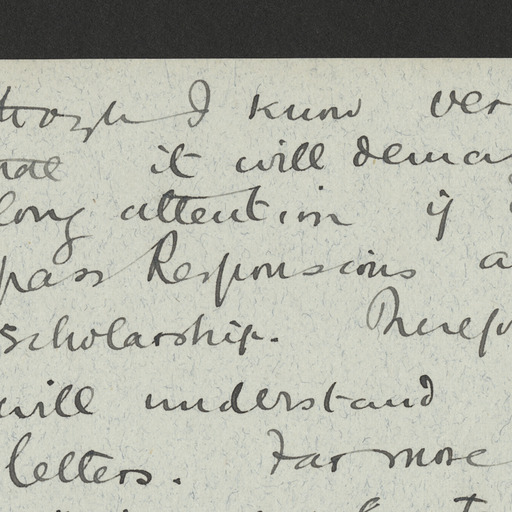 though I know ver
it will dema
long attention if
pass Responsions a
scholarship. Therefo
will understand
letters. Far more